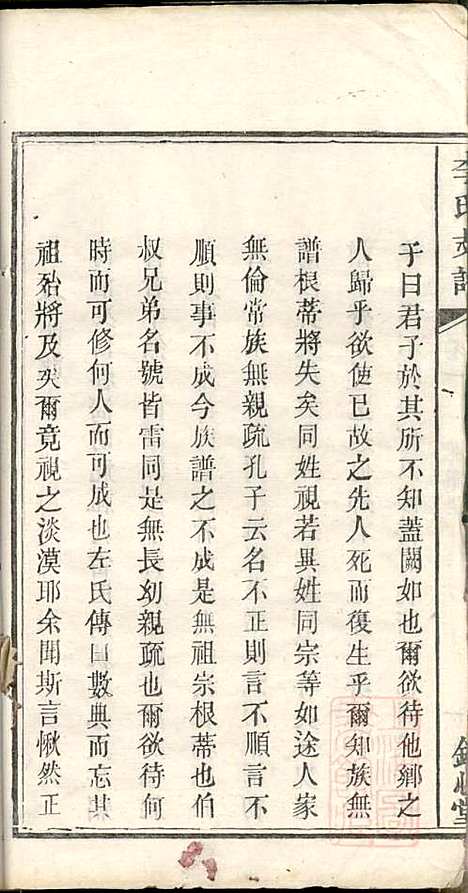 子曰君子於其所不知蓋闕如也爾欲待他鄉之
人歸乎欲使已故之先人死而復生乎爾知族無
譜根蒂將失矣同姓視若異姓同宗等如途人家
無倫常族無親疏孔子云名不正則言不順言不
順則事不成今族譜之不成是無祖宗根蒂也伯
叔兄弟名號皆雷同是無長幼親疏也爾欲待何
時而可修何人而可成也左氏傳曰數典而忘其
祖殆將及矣爾竟視之淡漠耶余聞斯言愀然正